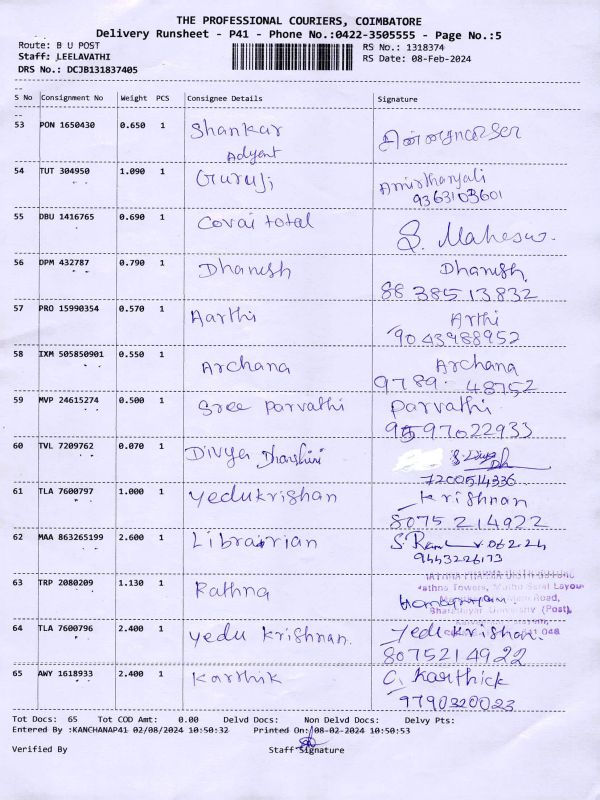 THE PROFESSIONAL COURIERS, COIMBATORE
Delivery Runsheet - P41 - Phone No.:0422-3505555 - Page No.:5
Route: B U POST RS No.: 1318374
Staff: LEELAVATHI RS Date: 08-Feb-2024
DRS No.: DCJB131837405
S No Consignment No Weight PCS Consignee Details Signature
53 PON 1650430 0.650 1 Shankar
Adyent
54 TUT 304950 1.090 1 Guruji Amirthanjali
9363103601
55 DBU 1416765 0.690 1 Covai total S. Mahesw.
56 DPM 432787 0.790 1 Dhanush Dhanush
88 385 13832
57 PRO 15990354 0.570 1 Aarthi Arthi
9043988952
58 IXM 505850901 0.550 1 Archana Archana
9789. 48752
59 MVP 24615274 0.500 1 Sree parvathi parvathi
9597022933
60 TVL 7209762 0.070 1 Divya Dharshini
7200514336
61 TLA 7600797 1.000 1 yedukrishan krishnan
8075 214922
62 MAA 863265199 2.600 1 Librarian
9443226173
63 TRP 2080209 1.130 1 Rathna
64 TLA 7600796 2.400 1 yedu krishnan. Yedukrishan.
8075214922
65 AWY 1618933 2.400 1 Karthik C. Karthick
9790320023
Tot Docs: 65 Tot COD Amt: 0.00 Delvd Docs: Non Delvd Docs: Delvy Pts:
Entered By :KANCHANAP41 02/08/2024 10:50:32 Printed On:08-02-2024 10:50:53
Verified By Staff Signature